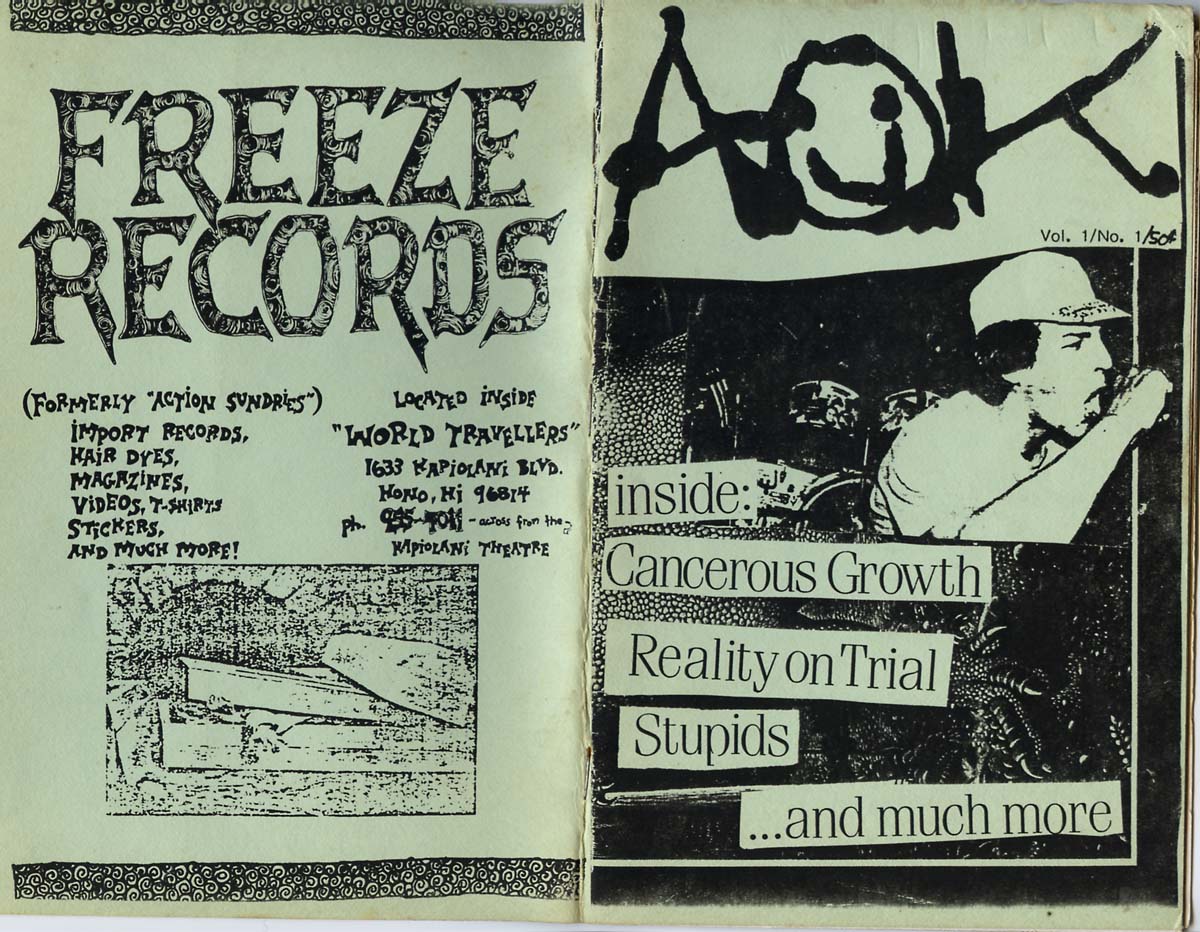 FREEZE
RECORDS
(FORMERLY "ACTION SUNDRIES")
IMPORT RECORDS,
HAIR DYES,
MAGAZINES,
VIDEOS, T-SHIRTS
STICKERS,
AND MUCH MORE!
LOCATED INSIDE
"WORLD TRAVELLERS"
1633 KAPIOLANI BLVD.
HONO, Hi 96814
Ph. - across from the
KAPIOLANI THEATRE
AOK
Vol. 1/No. 1/50¢
inside:
Cancerous Growth
Reality on Trial
Stupids
...and much more